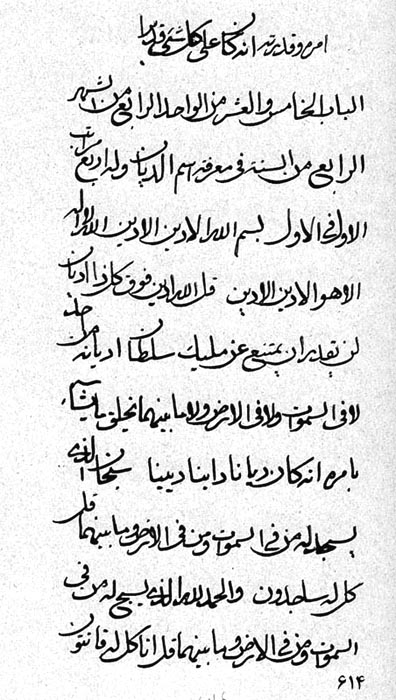 امره و قدرته انه كان على كل شيء قديرا
الباب الخامس و العشر من الواحد الرابع من الشهر
الرابع من السنة في معرفة اسم الديان و له اربع مراتب
الاول في الاول بسم الله الادين الادين الله لا اله
الا هو الادين الادين قل الله ادين فوق كل ذا اديان
لن يقدر ان يمتنع عن مليك سلطان اديانه من احد
لا في السموات و لا في الارض و لا ما بينهما يخلق ما يشاء
بامره انه كان ديانا داينا ديينا سبحان الذي
يسجد له من في السموات و من في الارض و ما بينهما قل
كل له ساجدون و الحمد لله الذي يسبح له من في
السموات و من في الارض و ما بينهما قل انا كل له قانتون
۶۱۴